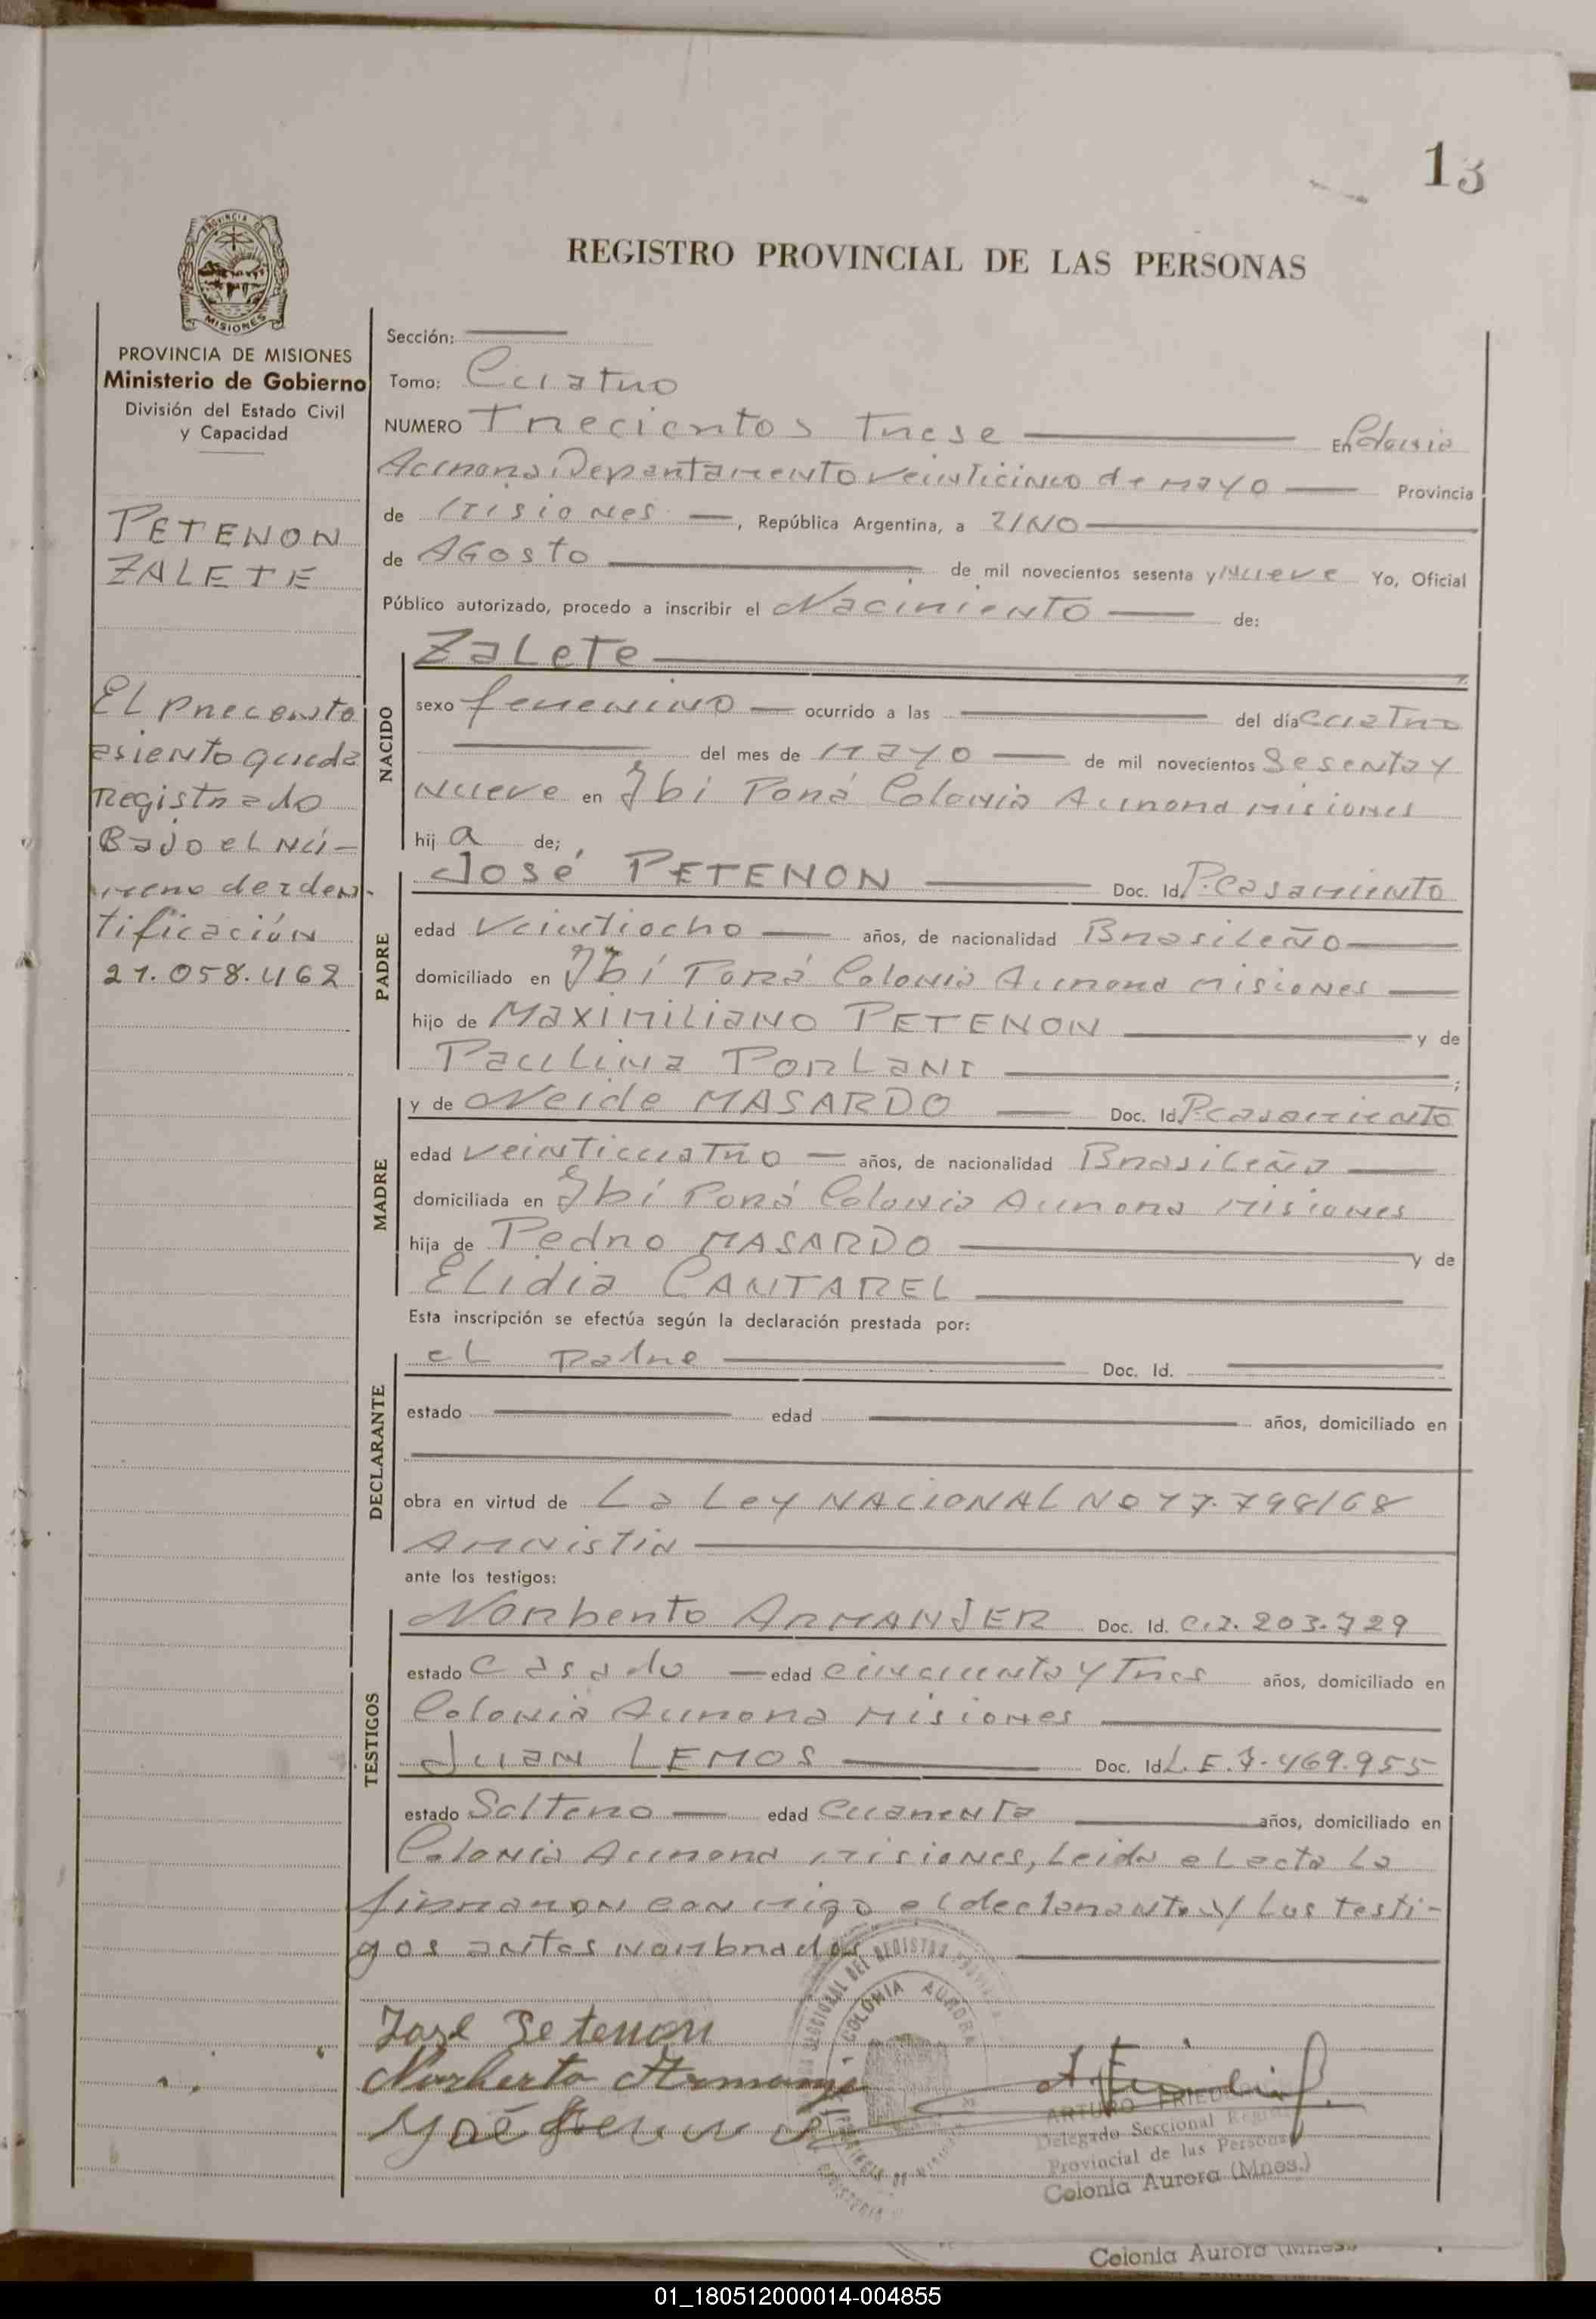 13
REGISTRO PROVINCIAL DE LAS PERSONAS
PROVINCIA DE MISIONES
Ministerio de Gobierno
División del Estado Civil
y Capacidad
PETERON
ZALETE
El precento
asiento queda
Registrado
Bajo el Nú-
mero de iden-
tificación
21.058.462
Sección:
Tomo: Cuatro
NUMERO Trecientos Trese En Colonia
Aurora, Departamento veinticinco de mayo Provincia
de Misiones, República Argentina, a UNO
de Agosto de mil novecientos sesenta y Nueve Yo, Oficial
Público autorizado, procedo a inscribir el Nacimiento de:
NACIDO
Zalete
sexo femenino ocurrido a las del día cuatro
del mes de Mayo de mil novecientos Sesenta y
Nueve en Ibi Porá Colonia Aurora Misiones
hija de;
PADRE
José PETERON Doc. Id. P. Casamiento
edad Veintiocho años, de nacionalidad Brasileño
domiciliado en Ibi Porá Colonia Aurora Misiones
hijo de Maximiliano PETERON y de
Paulina Porlani ;
MADRE
y de Neide MASARDO Doc. Id. P. Casamiento
edad veinticuatro años, de nacionalidad Brasileña
domiciliada en Ibi Porá Colonia Aurora Misiones
hija de Pedro MASARDO y de
Elidia CANTAREL
Esta inscripción se efectúa según la declaración prestada por:
DECLARANTE
el Padre Doc. Id.
estado edad años, domiciliado en
obra en virtud de La Ley NACIONAL No 17.798/68
Amnistia
ante los testigos:
TESTIGOS
Norberto ARMANJER Doc. Id. C.I. 203.729
estado Casado edad cincuenta y Tres años, domiciliado en
Colonia Aurora Misiones
Juan LEMOS Doc. Id. L.E. 7.469.955
estado Soltero edad Cuarenta años, domiciliado en
Colonia Aurora Misiones, Leida el acta La
firmaron con migo el declarante y Los testi-
gos antes nombrados
José Peteron
Norberto
COLONIA AURORA
ARTURO
Delegado Seccional
Provincial de las Personas
Colonia Aurora (Mnes.)
Colonia Aurora (Mnes.)
01_180512000014-004855